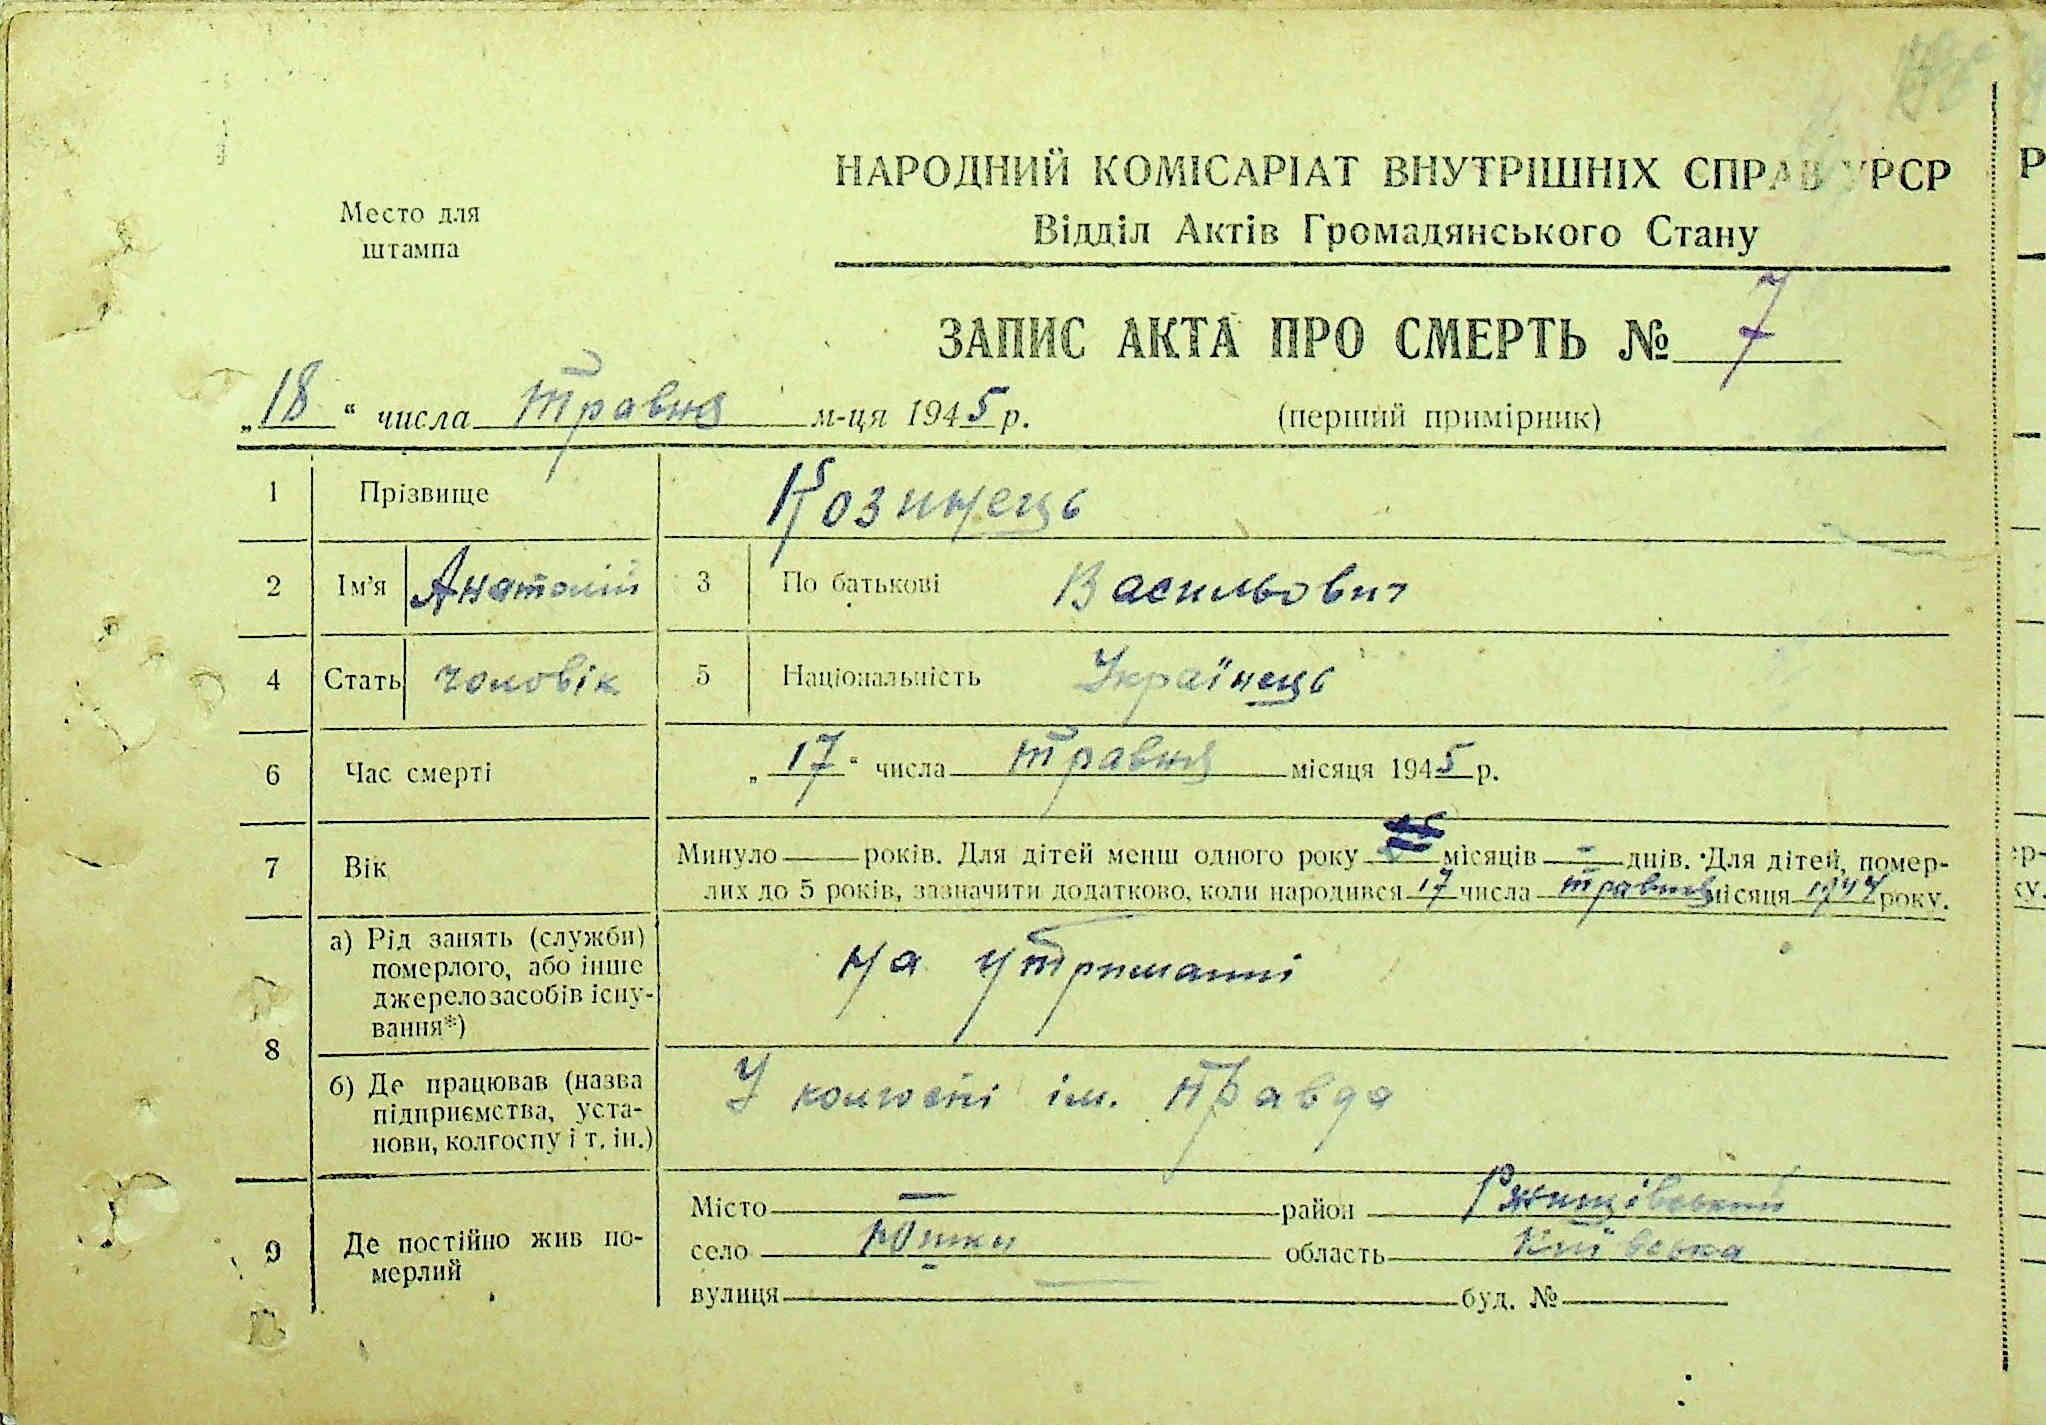 НАРОДНИЙ КОМІСАРІАТ ВНУТРІШНІХ СПРАВ УРСР
Место для штампа
Відділ Актів Громадянського Стану
ЗАПИС АКТА ПРО СМЕРТЬ № 7
„18“ числа травня м-ця 1945 р.
(перший примірник)
1 Прізвище Козинець
2 Ім'я Анатолій 3 По батькові Васильович
4 Стать чоловік 5 Національність Українець
6 Час смерті „17“ числа травня місяця 1945 р.
7 Вік Минуло — років. Для дітей менш одного року місяців — днів. Для дітей, помер-
лих до 5 років, зазначити додатково, коли народився 17 числа травня місяця 1944 року.
8 а) Рід занять (служби) померлого, або інше джерело засобів існу-вання*) на утриманні
б) Де працював (назва підприємства, уста-нови, колгоспу і т. ін.) У колгоспі ім. Правда
9 Де постійно жив по-мерлий
Місто — район Ржищівський
село Юшки область Київська
вулиця — буд. №